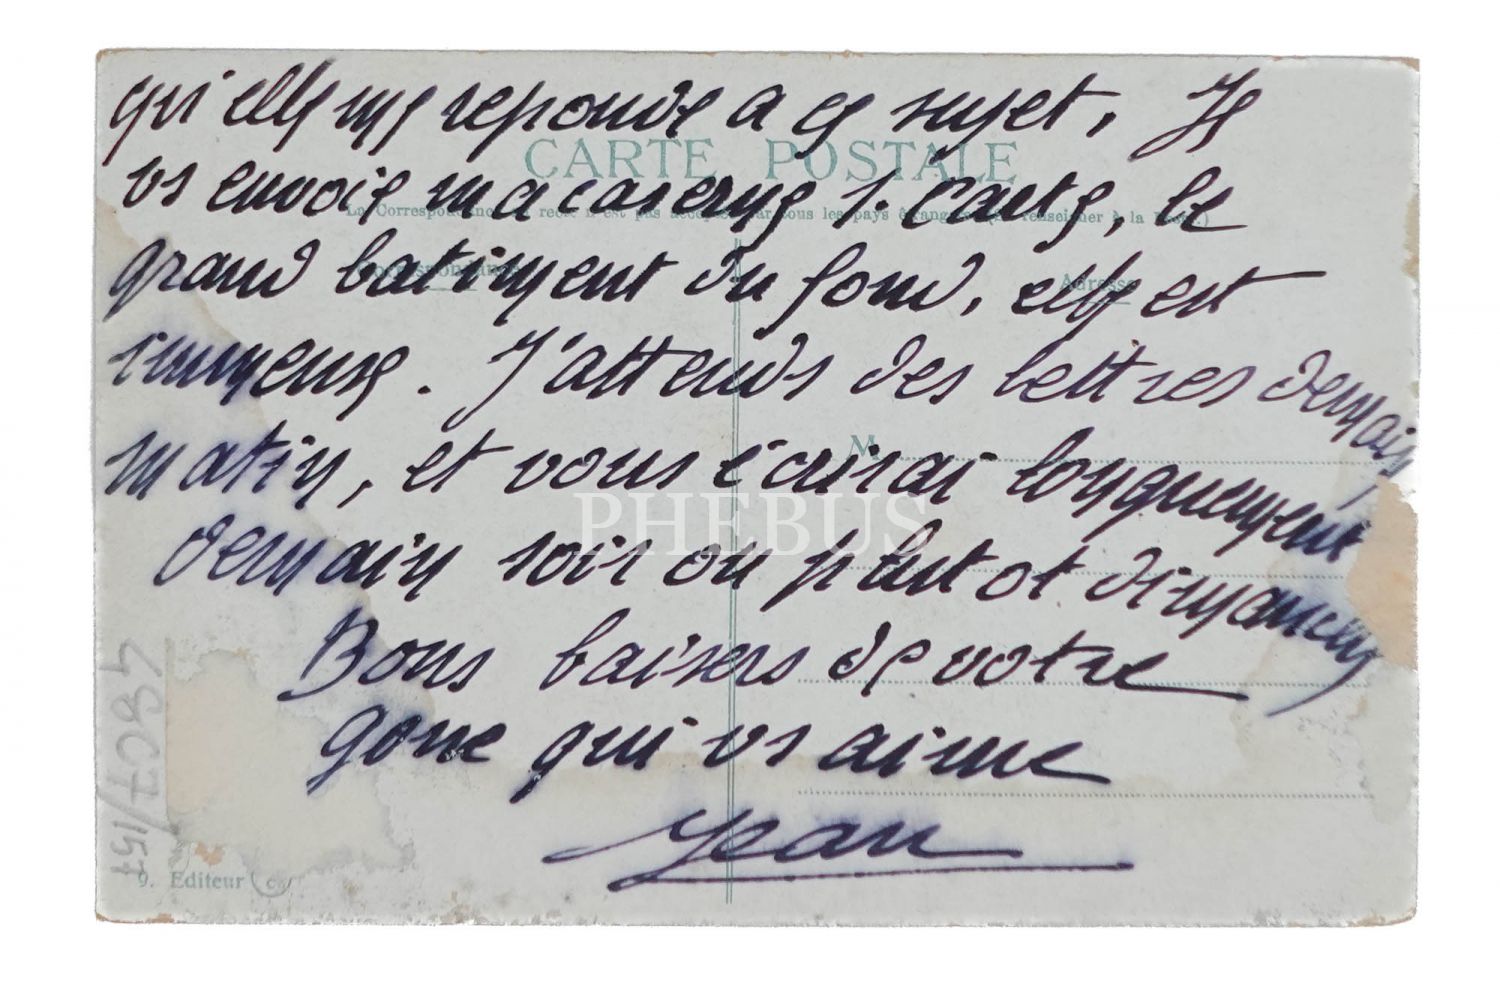 qu'elle me reponde a ce sujet, Je
CARTE POSTALE
vs envoie ma caserne s. carte, le
La Correspondance au recto n'est pas acceptée par tous les pays étrangers (Se renseigner à la Poste.)
Correspondance
Adresse
grand batiment du fond, elle est
immense. J'attends des lettres demain
M
matin, et vous ecrirai longuement
PHEBUS
demain soir ou plutot dimanche
Bons baisers de votre
gone qui vs aime
Jean
4807/157
9. Editeur